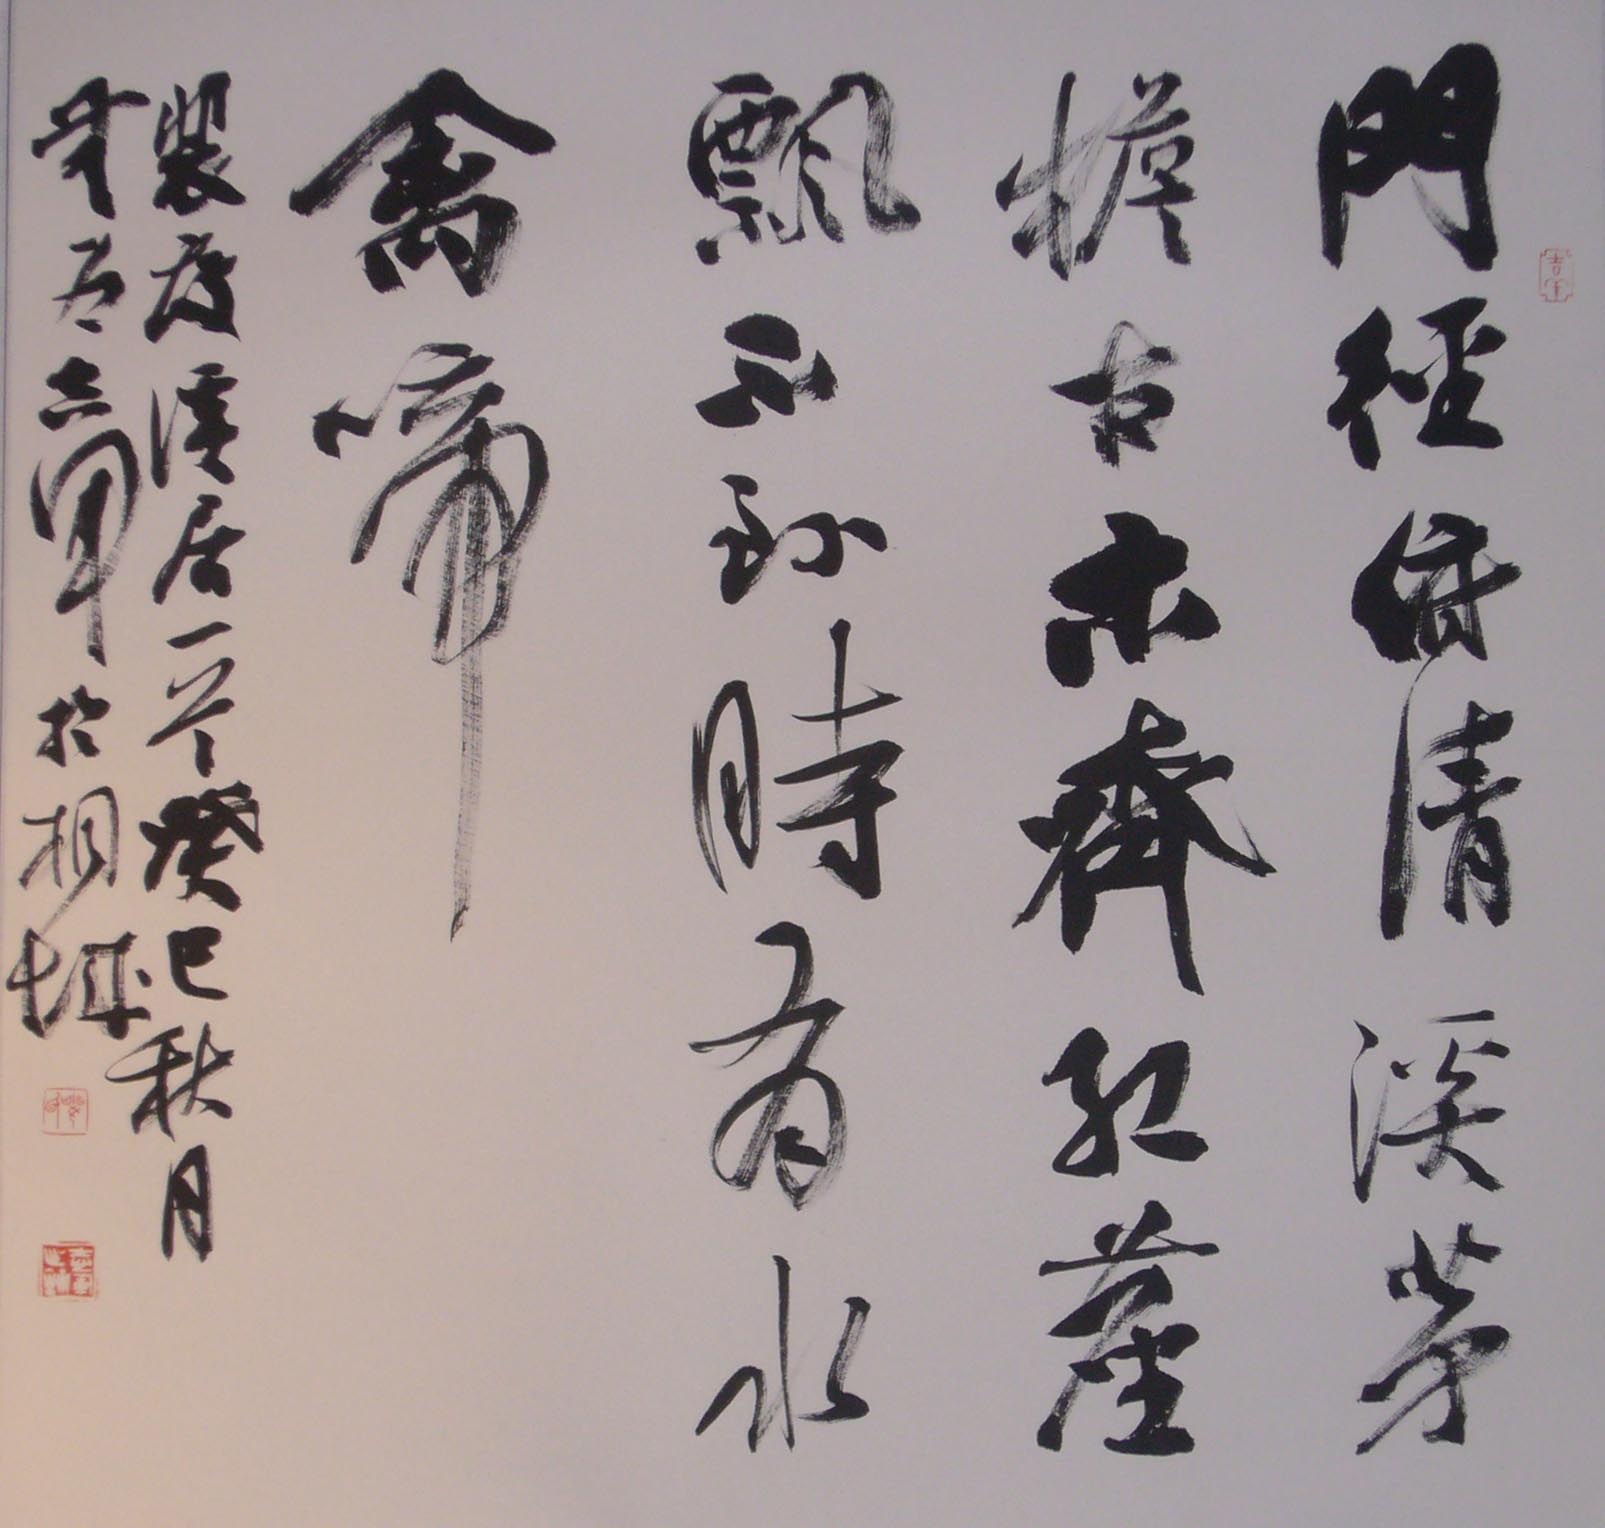 門徑俯清溪茅
檐古木齊紅塵
飄不到時有水
禽啼
裴度溪居一癸巳秋月
志軍於相城